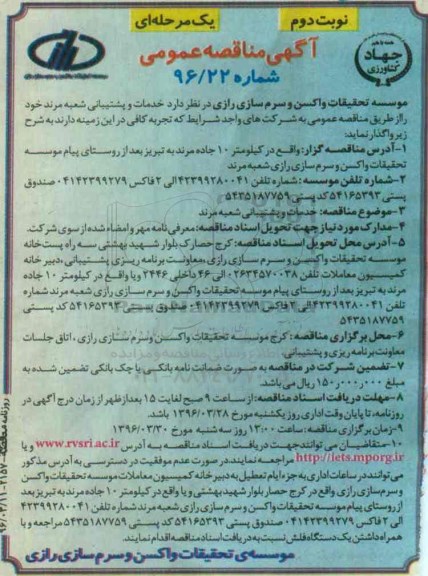 نوبت دوم
یک مرحله‌ای
همه با هم
جهاد
کشاورزی
آگهی مناقصه عمومی
شماره ۹۶/۲۲
موسسه تحقیقات واکسن و سرم سازی رازی در نظر دارد خدمات و پشتیبانی شعبه مرند خود
رااز طریق مناقصه عمومی به شرکت های واجد شرایط که تجربه کافی در این زمینه دارند به شرح
زیر واگذار نماید:
۱-آدرس مناقصه گزار: واقع در کیلومتر ۱۰ جاده مرند به تبریز بعد از روستای پیام موسسه
تحقیقات واکسن و سرم سازی رازی شعبه مرند
۲-شماره تلفن موسسه: شماره تلفن ۴۲۳۹۹۲۸۰۰۴۱ الی ۲ فاکس ۰۴۱۴۲۳۹۹۲۷۹ صندوق
پستی ۵۴۱۶۵۳۹۳ کد پستی ۵۴۳۵۱۸۷۷۵۹
۳-موضوع مناقصه: خدمات و پشتیبانی شعبه مرند
۴-مدارک مورد نیاز جهت تحویل اسناد مناقصه: معرفی نامه مهر و امضاء شده از سوی شرکت.
۵-آدرس محل تحویل اسناد مناقصه: کرج حصارک بلوار شهید بهشتی سه راه پست خانه
موسسه تحقیقات واکسن و سرم سازی رازی ،معاونت برنامه ریزی پشتیبانی، دبیر خانه
کمیسیون معاملات تلفن ۰۲۶۳۴۵۷۰۰۳۸ الی ۴۶ داخلی ۲۴۴۶ ویا واقع در کیلومتر ۱۰ جاده
مرند به تبریز بعد از روستای پیام موسسه تحقیقات واکسن و سرم سازی رازی شعبه مرند شماره
تلفن ۴۲۳۹۹۲۸۰۰۴۱ الی ۲ فاکس ۰۴۱۴۲۳۹۹۲۷۹ صندوق پستی ۵۴۱۶۵۳۹۳ کد پستی
۵۴۳۵۱۸۷۷۵۹
۶-محل برگزاری مناقصه: کرج موسسه تحقیقات واکسن وسرم سازی رازی ، اتاق جلسات
معاونت برنامه ریزی و پشتیبانی.
۷-تضمین شرکت در مناقصه به صورت ضمانت نامه بانکی، یا چک بانکی تضمین شده به
مبلغ ۱۵۰٫۰۰۰٫۰۰۰ ریال می باشد.
۸-مهلت دریافت اسناد مناقصه: از ساعت ۹ صبح لغایت ۱۵ بعدازظهر از زمان درج آگهی در
روزنامه، تا پایان وقت اداری روز یکشنبه مورخ ۱۳۹۶/۰۳/۲۸ می باشد.
۹-زمان برگزاری مناقصه: ساعت ۱۳:۰۰ روز سه شنبه مورخ ۱۳۹۶/۰۳/۳۰
۱۰-متقاضیان می توانند جهت دریافت اسناد مناقصه به آدرس www.rvsri.ac.ir و یا
http://iets.mporg.ir مراجعه نمایند در صورت عدم موفقیت در دسترسی به آدرس مذکور
می توانند در ساعات اداری به جزء ایام تعطیل به دبیر خانه کمیسیون معاملات موسسه تحقیقات واکسن
و سرم سازی رازی واقع در کرج حصار بلوار شهید بهشتی و یا واقع در کیلومتر ۱۰ جاده مرند به تبریز بعد
از روستای پیام موسسه تحقیقات واکسن و سرم سازی رازی شعبه مرند شماره تلفن ۴۲۳۹۹۲۸۰۰۴۱
الی ۲ فاکس ۰۴۱۴۲۳۹۹۲۷۹ صندوق پستی ۵۴۱۶۵۳۹۳ کد پستی ۵۴۳۵۱۸۷۷۵۹ مراجعه و با
همراه داشتن یک دستگاه فلش نسبت به دریافت اسناد مناقصه اقدام نمایند.
موسسه‌ی تحقیقات واکسن و سرم سازی رازی